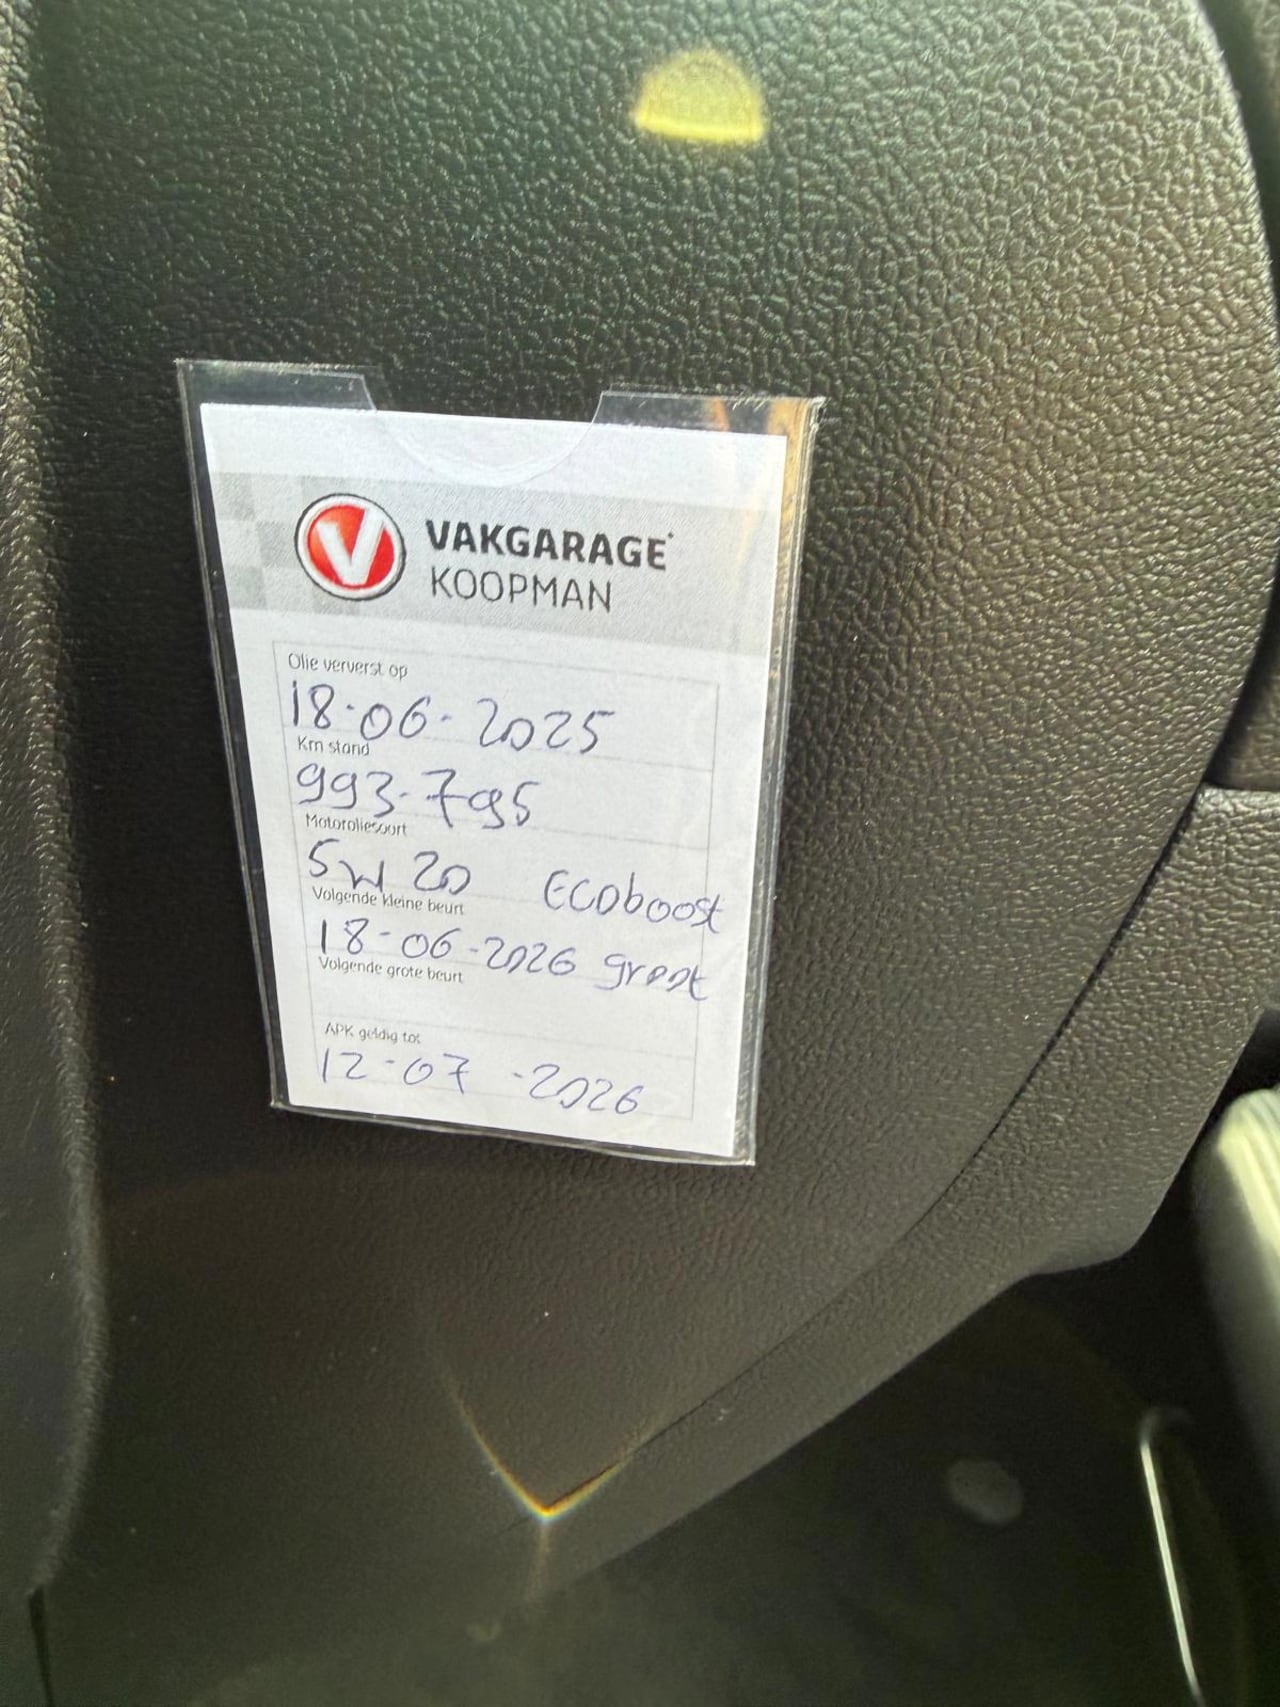 VAKGARAGE
KOOPMAN
Olie ververst op
18-06-2025
Km stand
993.795
Motoroliesoort
5W 20 ECOboost
Volgende kleine beurt
18-06-2026 groot
Volgende grote beurt
APK geldig tot
12-07-2026